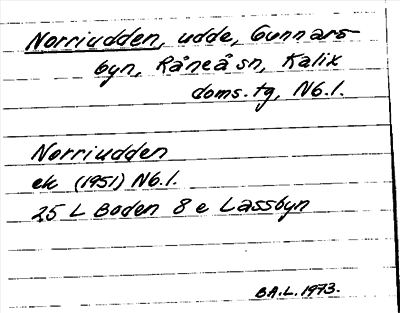 Norriudden, udde, Gunnars-
byn, Råneå sn, Kalix
doms.tg, Nb.l.
Norriudden
ek (1951) Nb.l.
25 L Boden 8 e Lassbyn
B.A.L. 1973.